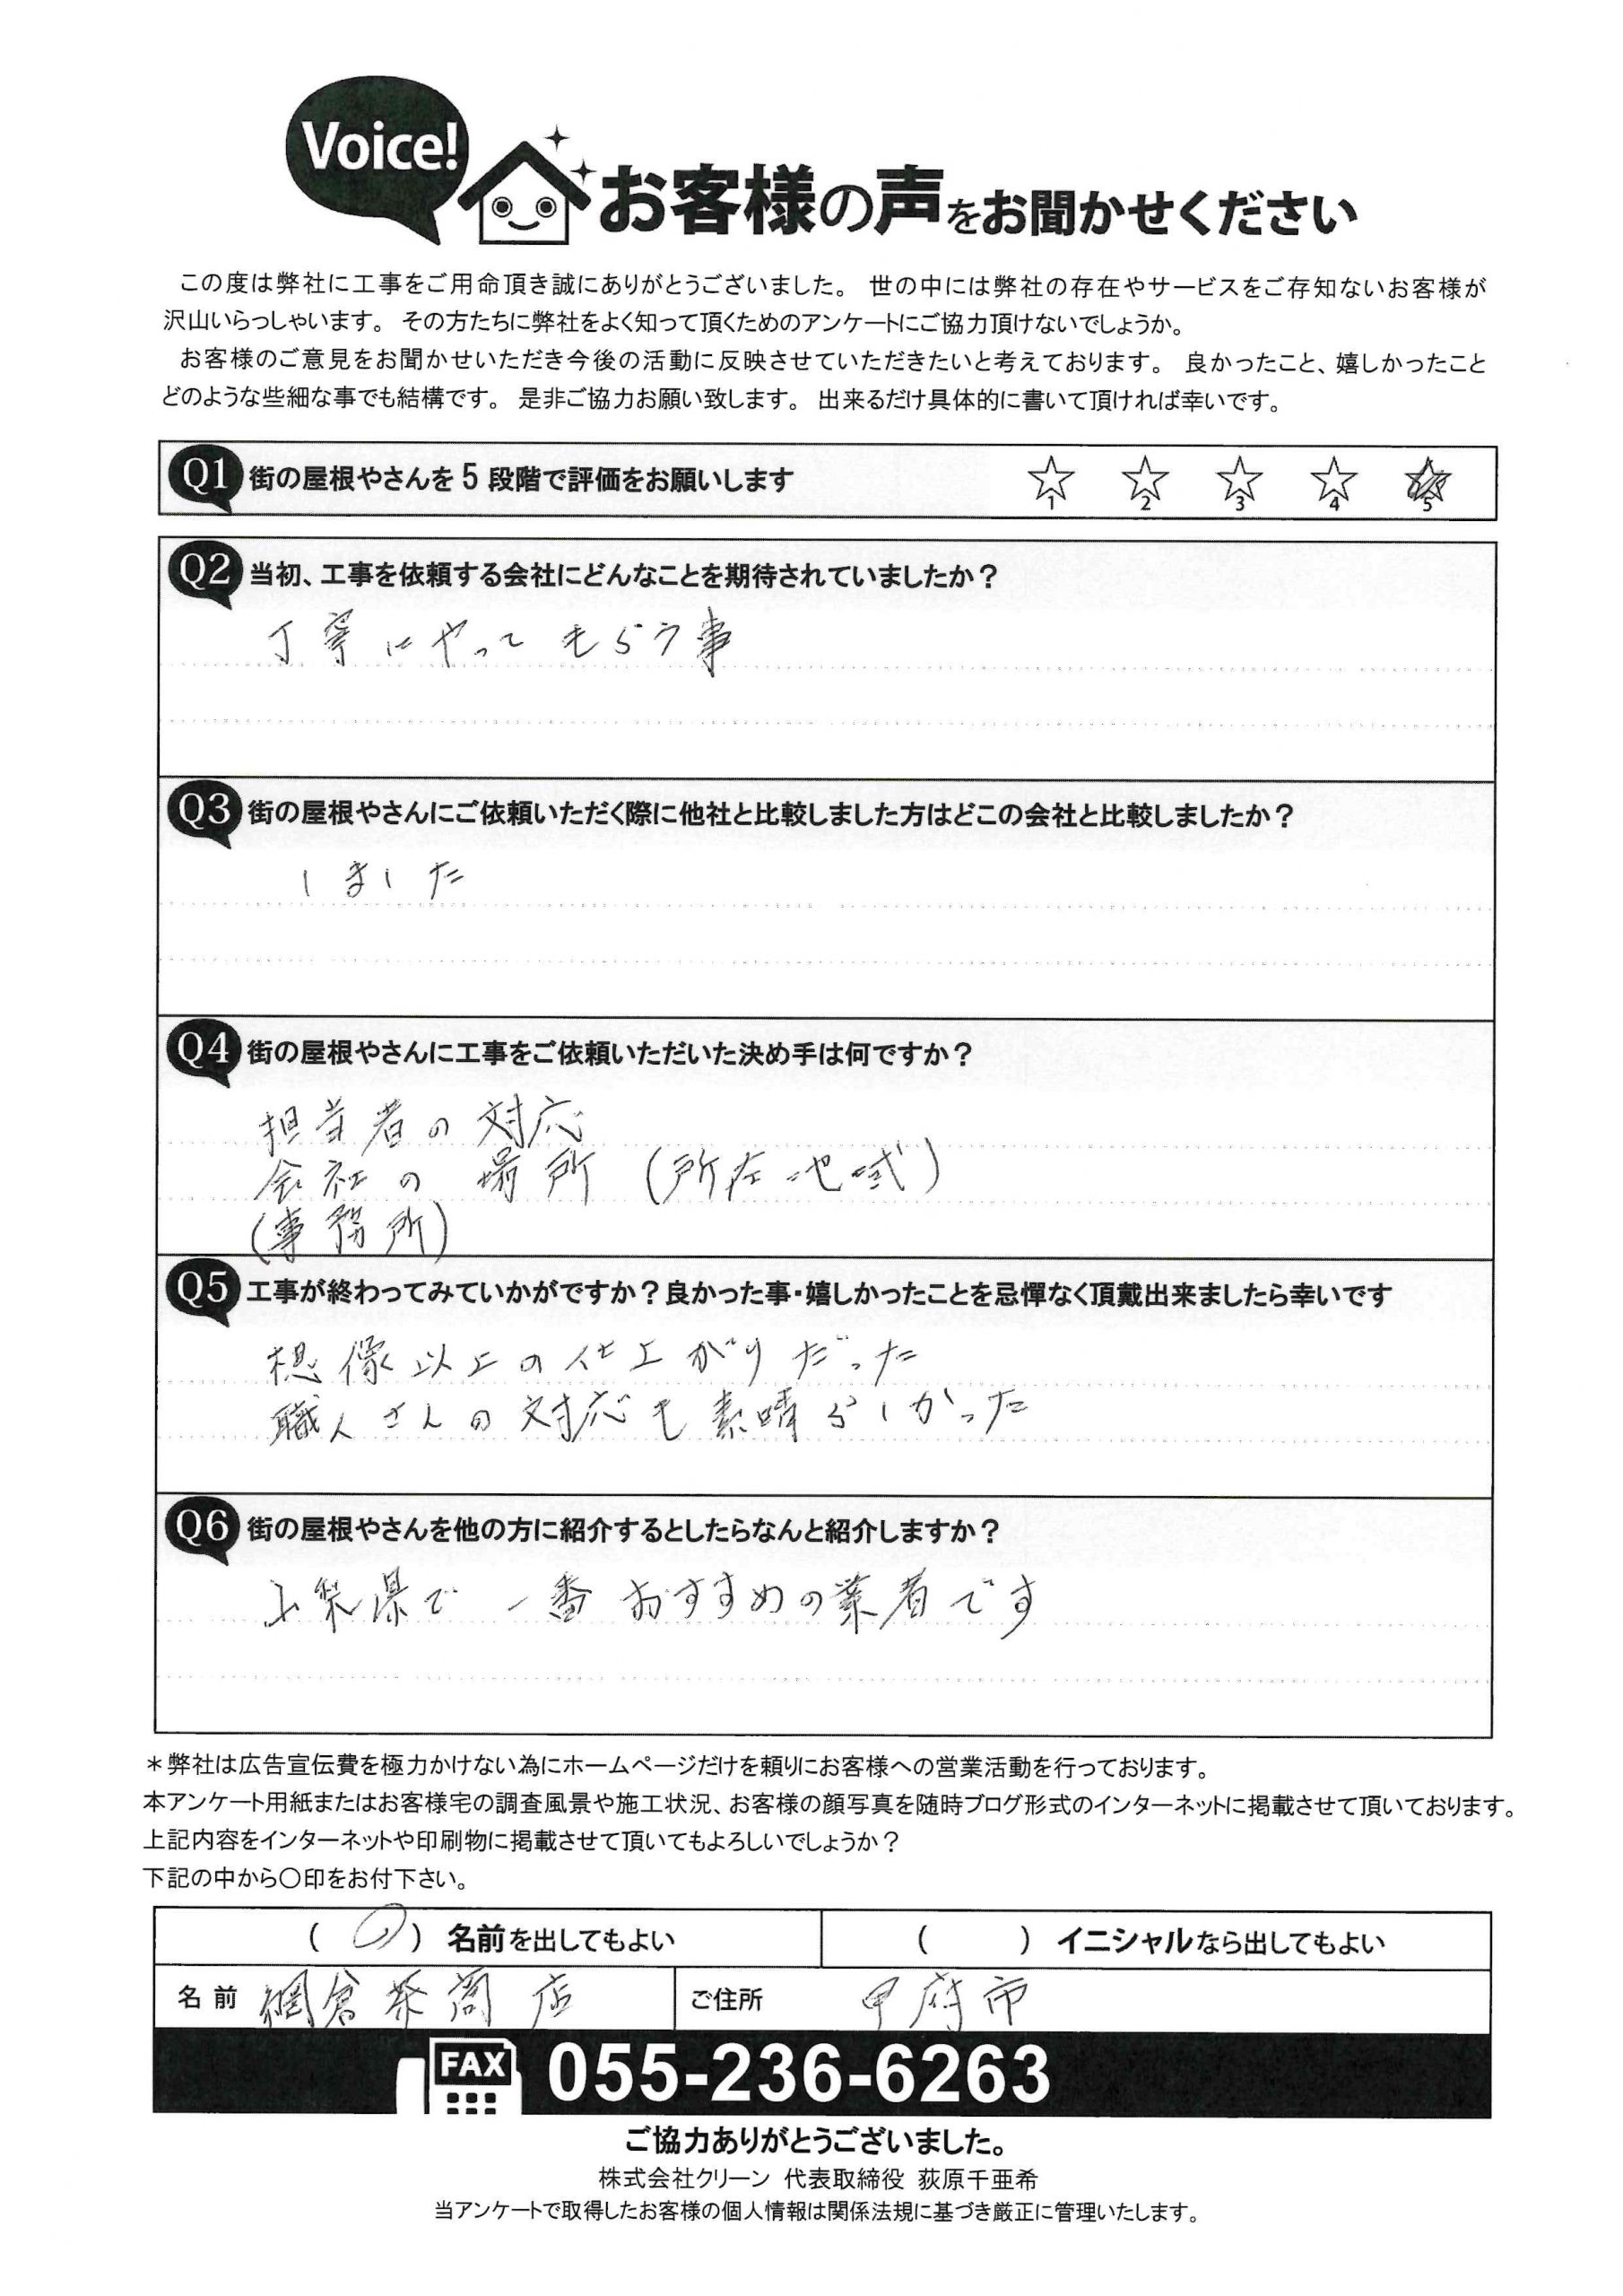 Voice!
お客様の声をお聞かせください
この度は弊社に工事をご用命頂き誠にありがとうございました。 世の中には弊社の存在やサービスをご存知ないお客様が
沢山いらっしゃいます。 その方たちに弊社をよく知って頂くためのアンケートにご協力頂けないでしょうか。
お客様のご意見をお聞かせいただき今後の活動に反映させていただきたいと考えております。 良かったこと、嬉しかったこと
どのような些細な事でも結構です。 是非ご協力お願い致します。 出来るだけ具体的に書いて頂ければ幸いです。
Q1 街の屋根やさんを5段階で評価をお願いします ☆1 ☆2 ☆3 ☆4 ☆5
Q2 当初、工事を依頼する会社にどんなことを期待されていましたか?
丁寧にやってもらう事
Q3 街の屋根やさんにご依頼いただく際に他社と比較しました方はどこの会社と比較しましたか?
しました
Q4 街の屋根やさんに工事をご依頼いただいた決め手は何ですか?
担当者の対応
会社の場所(所在地域)
(事務所)
Q5 工事が終わってみていかがですか?良かった事・嬉しかったことを忌憚なく頂戴出来ましたら幸いです
想像以上の仕上がりだった
職人さんの対応も素晴らしかった
Q6 街の屋根やさんを他の方に紹介するとしたらなんと紹介しますか?
山梨県で一番おすすめの業者です
*弊社は広告宣伝費を極力かけない為にホームページだけを頼りにお客様への営業活動を行っております。
本アンケート用紙またはお客様宅の調査風景や施工状況、お客様の顔写真を随時ブログ形式のインターネットに掲載させて頂いております。
上記内容をインターネットや印刷物に掲載させて頂いてもよろしいでしょうか?
下記の中から〇印をお付下さい。
( 〇 ) 名前を出してもよい ( ) イニシャルなら出してもよい
名前 網倉茶商店 ご住所 甲府市
FAX 055-236-6263
ご協力ありがとうございました。
株式会社クリーン 代表取締役 荻原千亜希
当アンケートで取得したお客様の個人情報は関係法規に基づき厳正に管理いたします。